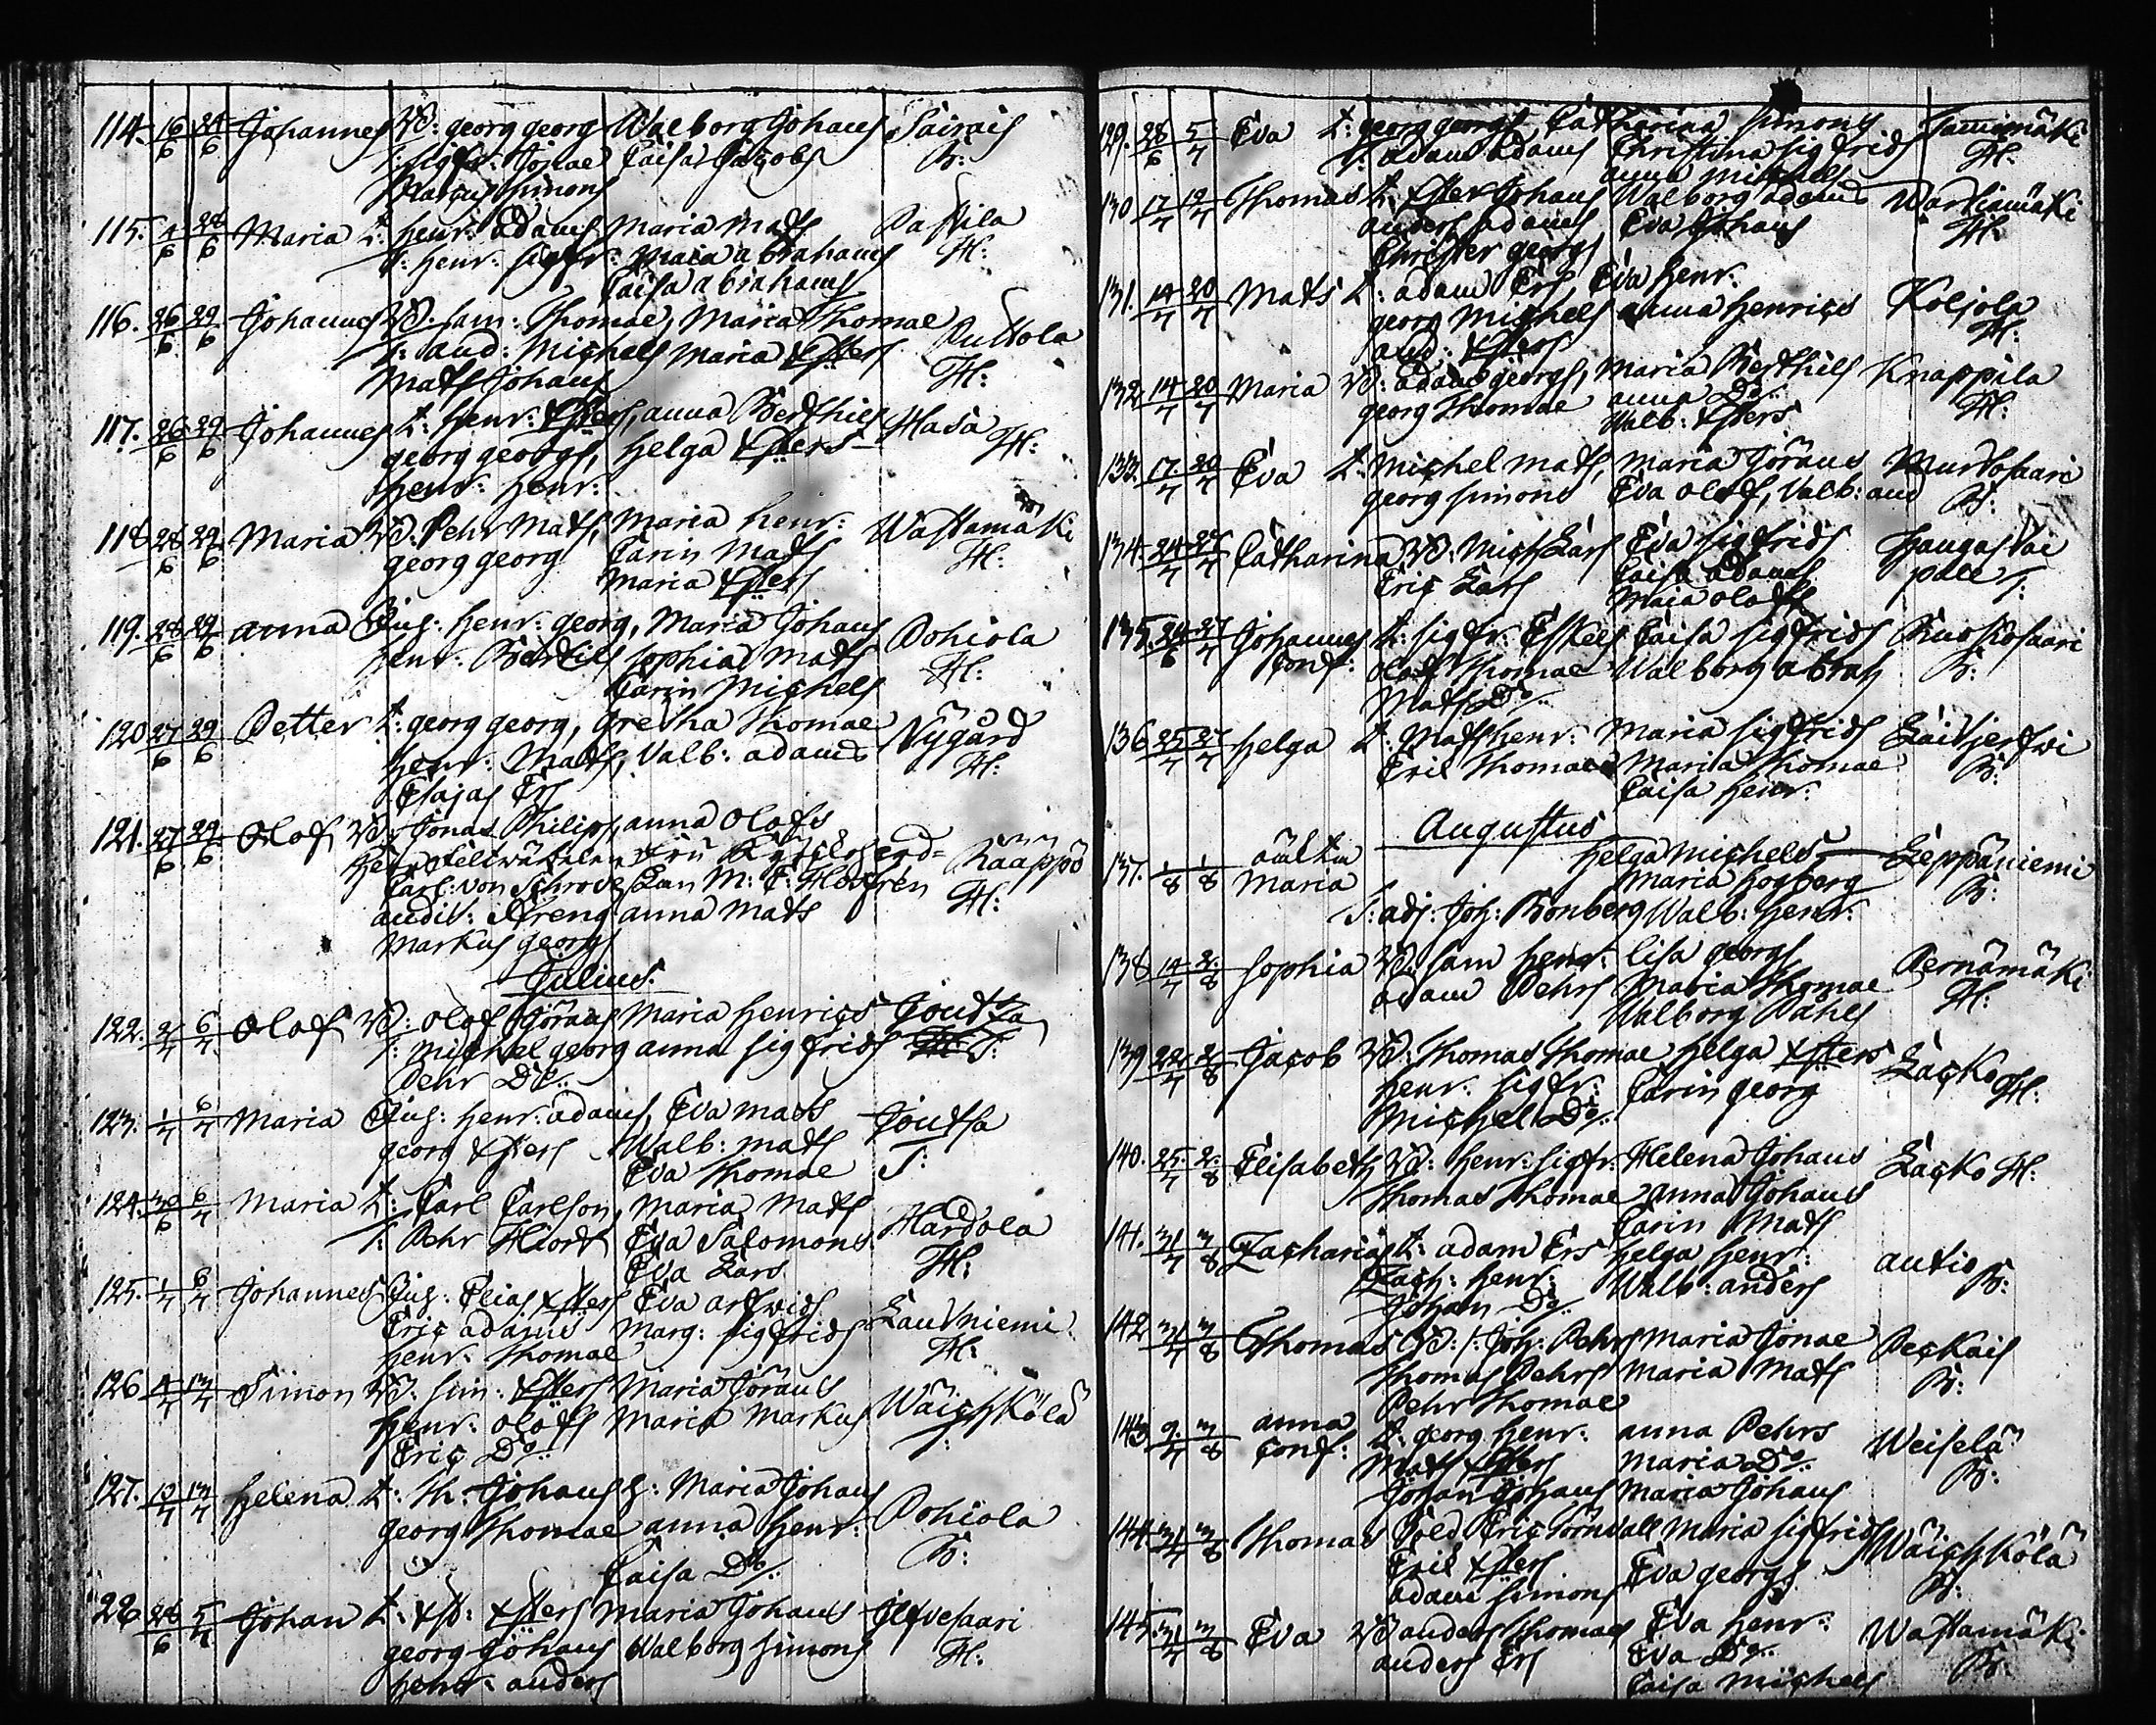 114. 16/6 24/6 Johannes B: georg georg Walborg Johans Sairais
T: sigfr: Jonae Caisa Jacobs B:
Marcus Simons
115. 4/6 28/6 Maria L: henr: adams Maria Mats Pattila
T: henr: sigfr: Maia abrahams H:
Caisa abrahams
116. 26/6 29/6 Johannes B: sam: Thomae, Maria Thomae Puttola
T: and: Michels Maria Xsters H:
Mats Johans
117. 26/6 29/6 Johannes L: henr: Xsters, anna Berthils Hasa
georg georgs, helga Xsters H:
henr: henr:
118 28/6 29/6 Maria B: Pehr Mats, Maria henr: Wastamäki
georg georg Carin Mats H:
Maria Xsters
119. 28/6 29/6 anna Jng: henr: georg, Maria Johans Pohiola
henr: Bertils sophia Mats H:
Carin Michels
120 27/6 29/6 Petter L: georg georg, gretha Thomae Nÿgård
henr: Mats, Valb: adams H:
Esajas Ers
121. 27/6 29/6 Olof B: Jonas Philips, anna Olofs
Carl von Schrove Räappö
audit: anna Mats H:
Markus georgs
Julius.
122. 2/7 6/7 Olof B: Olof Görans Maria henrics Joutza
T: Michel georg anna sigfrids T:
Pehr Do..
123. 1/7 6/7 Maria Jng: henr: adams, Eva Mats Joutsa
georg Xsters Walb: Mats T:
Eva Thomae
124. 30/6 6/7 Maria L: Carl Carlson, Maria Mats Hardola
T: Pehr Hiort Eva Salomons H:
Eva Lars
125. 1/7 6/7 Johannes Jng: Elias Xsters Eva arfwids Lauvniemi
Eric adams Marg: sigfrids H:
henr: Thomae
126 4/7 13/7 Simon B: sim: Xsters Maria Görans Wäichkölä
henr: olofs Maria Markus T:
Eric Do..
127. 12/7 13/7 helena L: Th: Johans Maria Johans Pohiola
georg Thomae anna henr: B:
Caisa Do..
28 28/6 5/7 Johan L: Xst: Xsters Maria Johans Jlfvesaari
georg Johans Walborg simons H:
henr: anders
129. 28/6 5/7 Eva L: georg georgs Catharina simons Tammimäki
T: adam adams Christina sigfrids H:
anna Michels
130 17/7 19/7 Thomas L: Xster Johans Walborg adams Warhiamäki
anders adams Eva Johans H:
Christer georgs
131. 14/7 20/7 Mats L: adam Ers Eva henr: Koljola
georg Michels anna henrics H:
and: Xsters
132 14/7 20/7 Maria B: adam georgs, Maria Berthils Knappila
georg Thomae anna Do.. H:
Walb: Xsters
133. 17/7 20/7 Eva L: Michel Mats, Maria Görans Murtosaari
georg simons Eva olofs, Valb: and B:
134. 24/7 27/7 Catharina B: Mich Lars Eva sigfrids haugas vai
Eric Lars Caisa adams pale T:
Maia olofs
135. 24/6 27/7 Johannes L: sigfr: Eskels Caisa sigfrids Ruokosaari
conf: olof Thomae Walborg abrah B:
Mats Do..
136 25/7 27/7 helga L: Mats henr: Maria sigfrids Laivjerfwi
Eric Thomae Maria Thomae B:
Caisa henr:
Augustus
137. 1/8 1/8 oälta helga Michels Leppäniemi
Maria Maria hogberg B:
T: adj: Joh: Bonberg Walb: henr:
138 14/7 2/8 sophia B: sam henr: lisa georgs Pernämäki
adam Pehrs Maria Thomae H:
Walborg Påhls
139 22/7 2/8 Jacob B: Thomas Thomae helga Xsters Läcko H:
henr: sigfr: Carin georg
Michel Do..
140. 25/7 2/8 Elisabeth B: henr: sigfr: Helena Johans Läcko H:
Thomas Thomae anna Johans
Carin Mats
141. 31/7 3/8 Zacharias L: adam Ers helga henr: autio
Zach: henr: Walb: anders B:
Johan Do..
142 31/7 3/8 Thomas B: T: Joh: Pehrs Maria Jonae Peckais
Thomas Pehrs Maria Mats B:
Pehr Thomae
143 9/7 3/8 anna L: georg henr: anna Pehrs Weiselä
conf: Mats Xsters Maria Do.. B:
Johan Johans Maria Johans
144 31/7 3/8 Thomas Sold Eric Törnvall Maria sigfrids Wäichkölä
Eric Xsters Eva georgs B:
adam simons
145 31/7 3/8 Eva B anders Thomas Eva henr: Wastamäki
anders Ers Eva Do.. B:
Caisa Michels